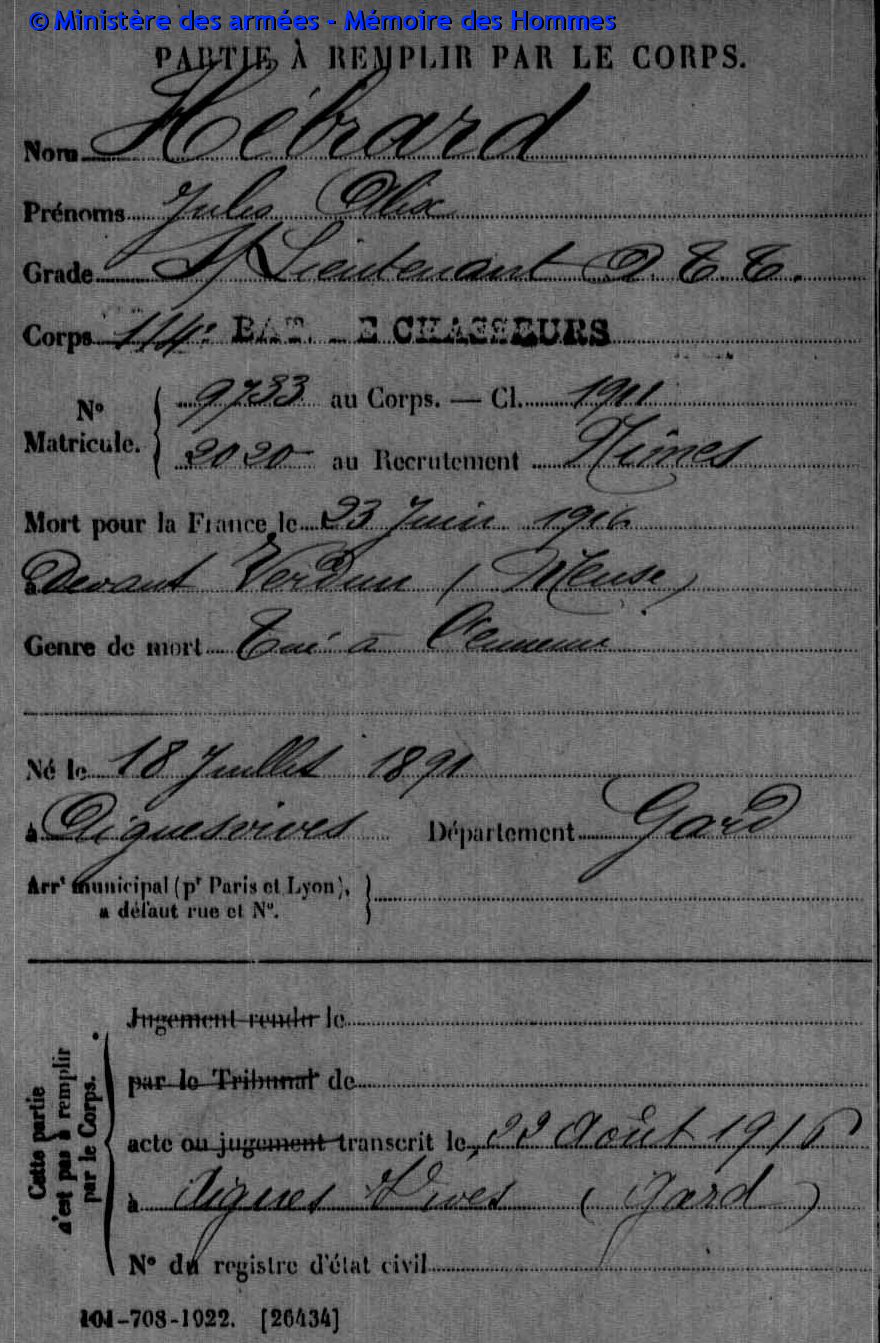 © Ministère des armées - Mémoire des Hommes
PARTIE À REMPLIR PAR LE CORPS.
Nom Hébrard
Prénoms Jules Alix
Grade S/Lieutenant A. T. T.
Corps 114e BAT. DE CHASSEURS
N° Matricule. { 9733 au Corps. — Cl. 1911
2020 au Recrutement Nîmes
Mort pour la France le 23 Juin 1916
à Devant Verdun (Meuse)
Genre de mort Tué à l'ennemi
Né le 18 Juillet 1891
à Aiguesvives Département Gard
Arrt municipal (pr Paris et Lyon),
à défaut rue et N°.
Jugement rendu le
par le Tribunal de
acte ou jugement transcrit le, 22 Août 1916
à Aigues Vives (Gard)
N° du registre d'état civil
Cette partie
n'est pas à remplir
par le Corps.
101-708-1022. [26434]